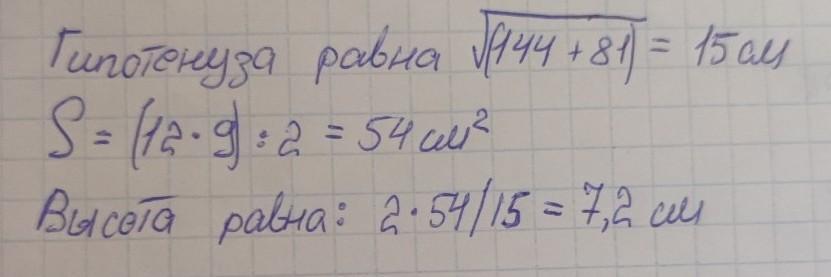 Гипотенуза равна √(144 + 81) = 15 см
S = (12 · 9) : 2 = 54 см²
Высота равна: 2 · 54/15 = 7,2 см